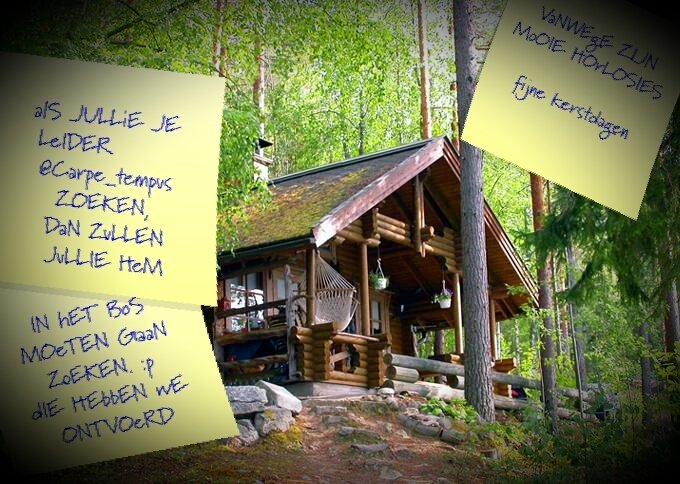 alS JULLiE JE
LeIDER
@Carpe_tempus
ZOEKEN,
DaN ZuLLEN
JuLLIE HeM
IN hET BoS
MOeTEN GaaN
ZoEKEN. :p
dIE HEbbEN wE
ONTVOeRD
VaNWEgE ZIJN
MoOIE HOrLOSIES
fijne kerstdagen